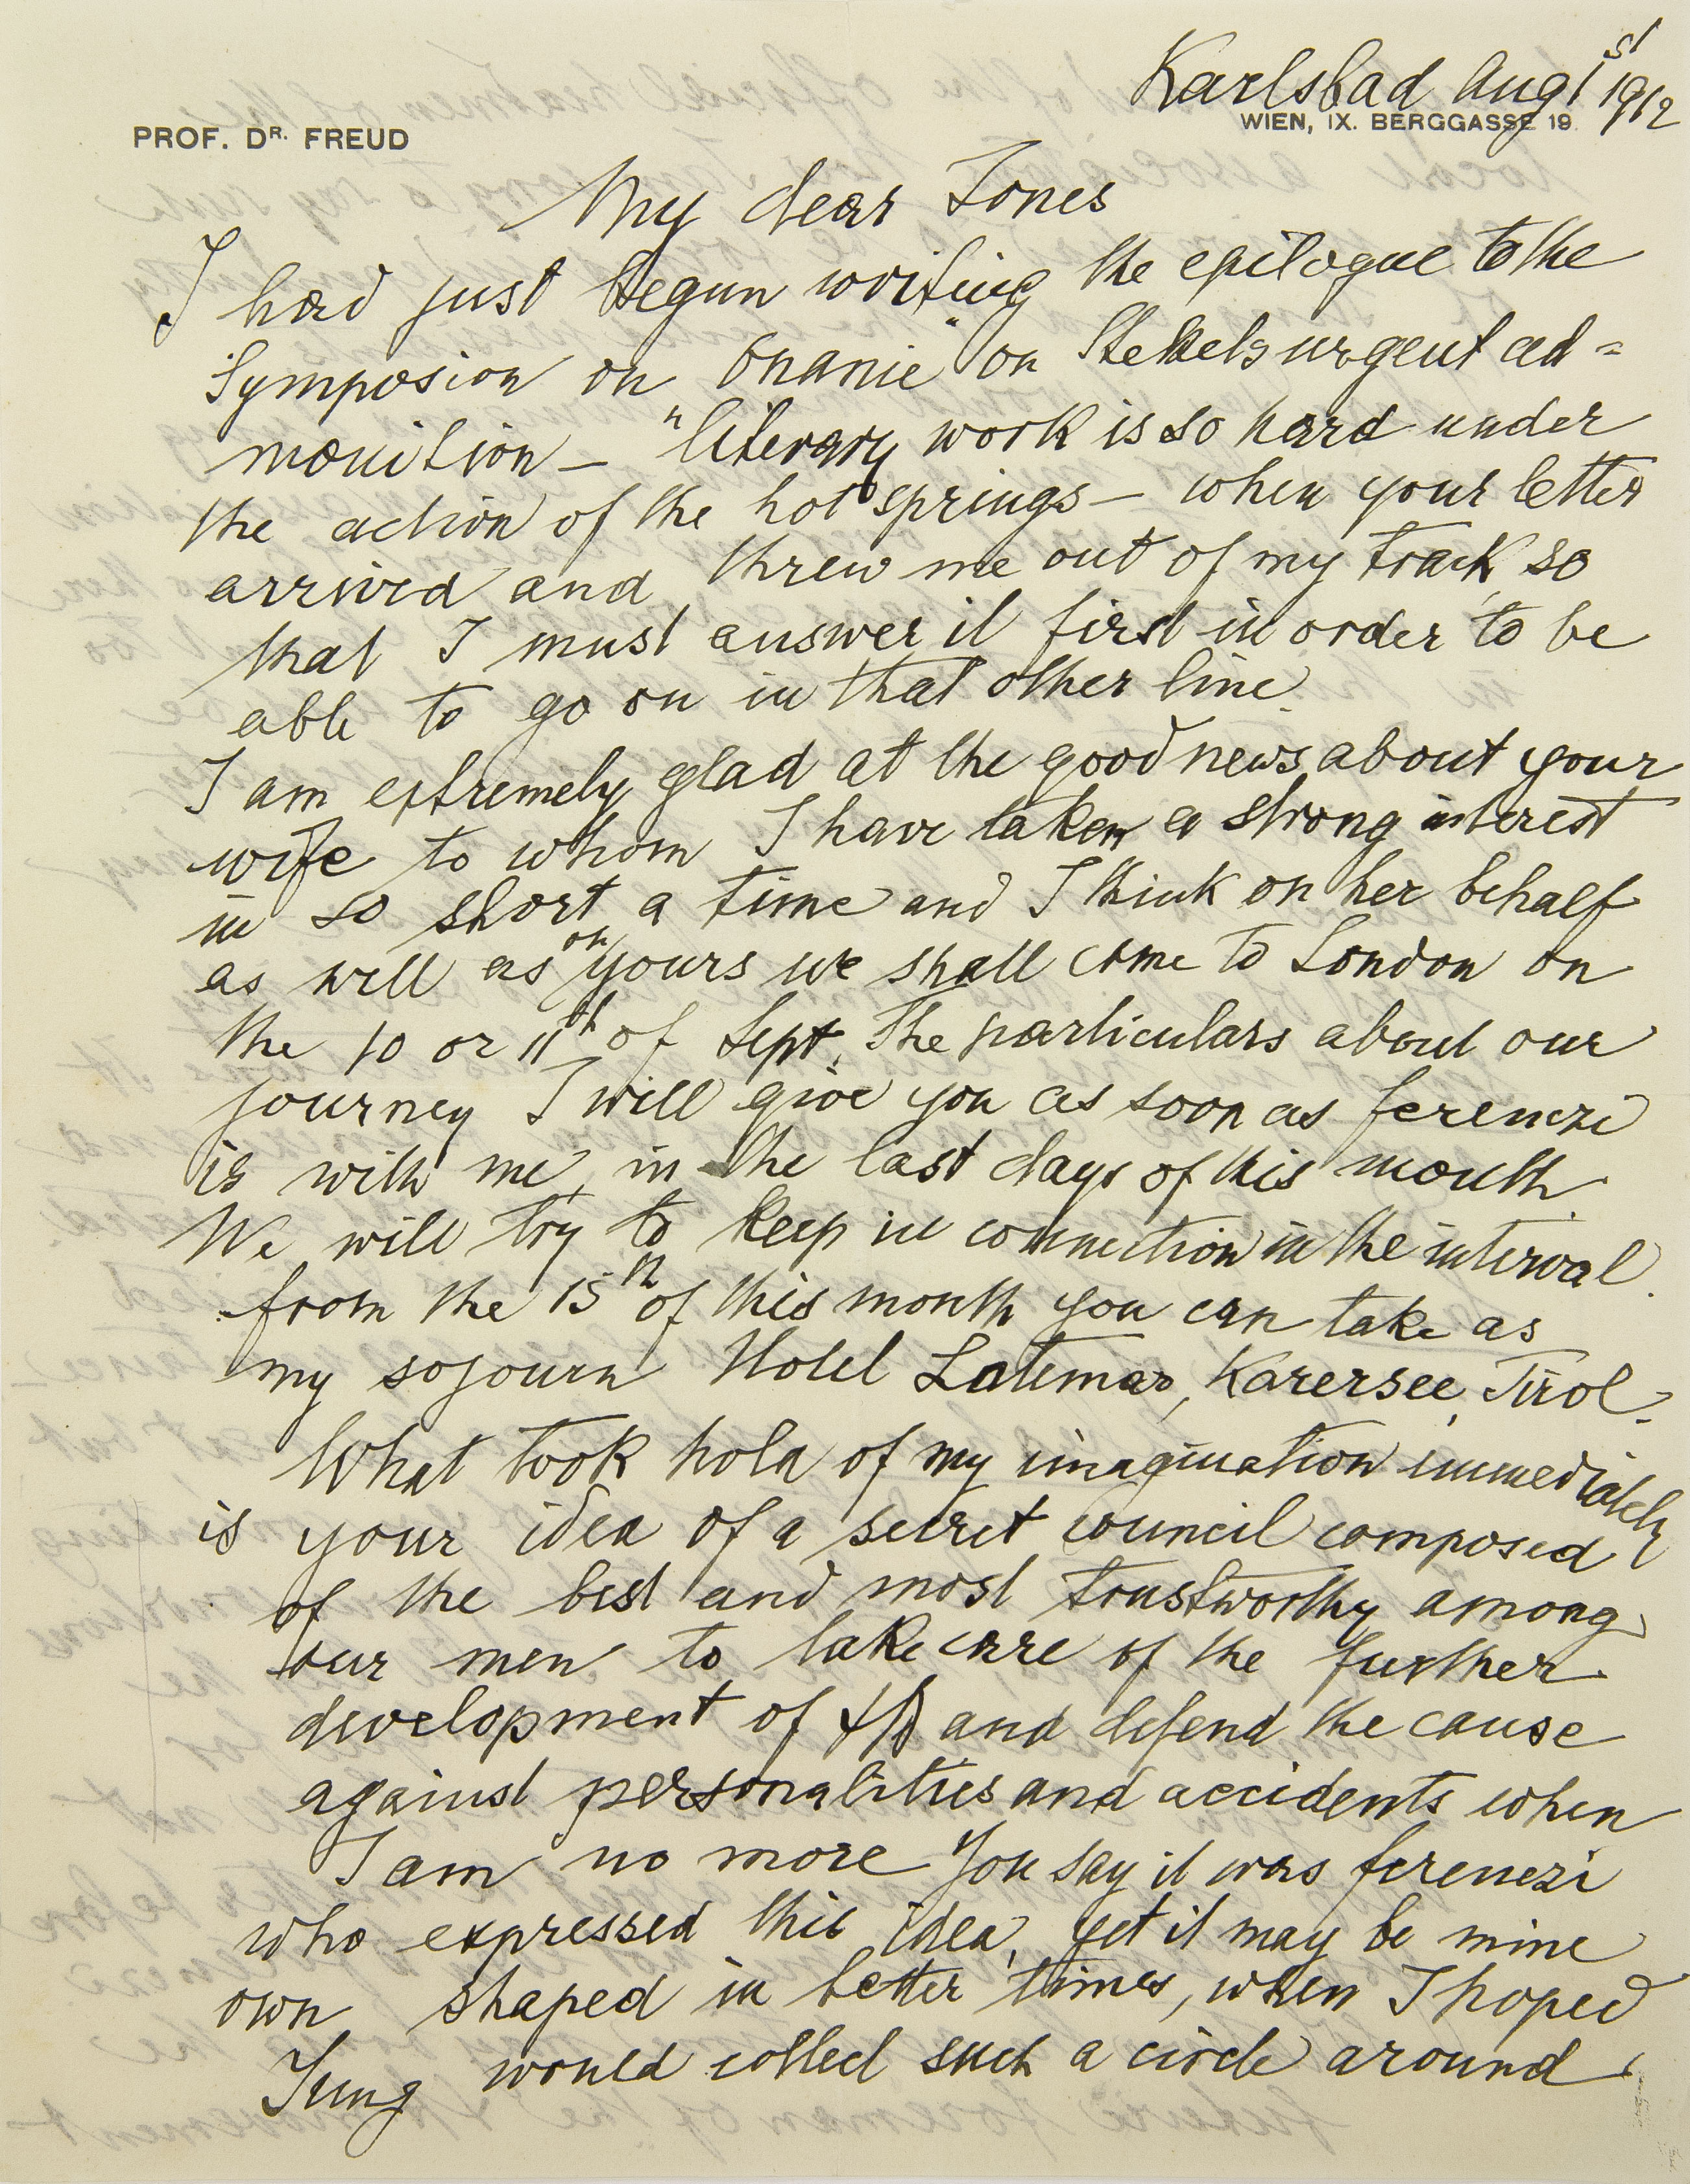 Karlsbad Aug 1st 1912
PROF. DR. FREUD
WIEN, IX. BERGGASSE 19.
My dear Jones
I had just begun writing the epilogue to the
Symposion on „Onanie“ on Stekels urgent ad=
monition – literary work is so hard under
the action of the hot springs – when your letter
arrived and threw me out of my track, so
that I must answer it first in order to be
able to go on in that other line.
I am extremely glad at the good news about your
wife to whom I have taken a strong interest
in so short a time and I think on her behalf
as well as on yours we shall come to London on
the 10 or 11th of Sept. The particulars about our
journey I will give you as soon as Ferenczi
is with me, in the last days of this month.
We will try to keep in connection in the interval.
From the 15th of this month you can take as
my sojourn Hotel Latemar, Karersee, Tirol.
What took hold of my imagination immediately
is your idea of a secret council composed
of the best and most trustworthy among
our men to take care of the further
development of ΨA and defend the cause
against personalities and accidents when
I am no more. You say it was Ferenczi
who expressed this idea, yet it may be mine
own shaped in better times, when I hoped
Jung would collect such a circle around